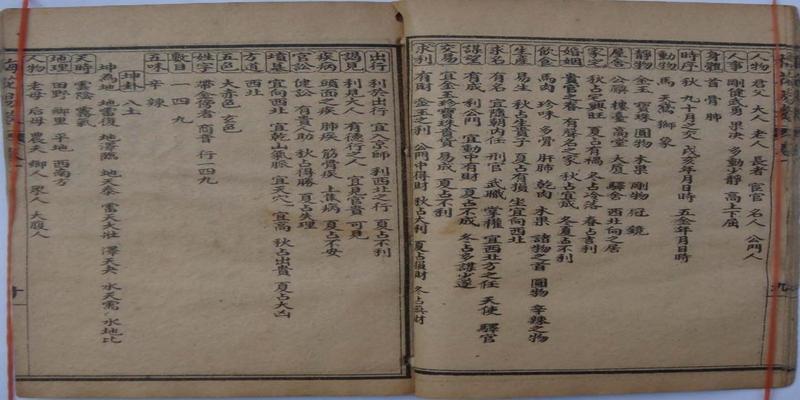 人物 君父 大人 老人 長者 宦官 名人 公門人
人事 剛健武勇 果決 多動少靜 高上下屈
身體 首 骨 肺
時序 秋 九十月之交 戌亥年月日時 五金年月日時
動物 馬 天鵝 獅 象
靜物 金玉 寶珠 圓物 木果 剛物 冠 鏡
屋舍 公廨 樓臺 高堂 大廈 驛舍 西北向之居
家宅 秋占宅興旺 夏占有禍 冬占冷落 春占吉利
婚姻 貴官之眷 有聲名之家 秋占宜成 冬夏占不利
飲食 馬肉 珍味 多骨 肝肺 乾肉 木果 諸物之首 圓物 辛辣之物
生產 易生 秋占生貴子 夏占有損 坐宜向西北
求名 有名 宜隨朝內任 刑官 武職 掌權 宜西北方之任 天使 驛官
謀望 有成 利公門 宜動中有財 夏占不成 冬占多謀少遂
交易 宜金玉珍寶珠貴貨 易成 夏占不利
求利 有財 金玉之利 公門中得財 秋占大利 夏占損財 冬占無財
出行 利於出行 宜入京師 利西北之行 夏占不利
謁見 利見大人 有德行之人 宜見官貴 可見
疾病 頭面之疾 肺疾 筋骨疾 上焦病 夏占不安
官訟 健訟 有貴人助 秋占得勝 夏占失理
墳墓 宜向西北 宜乾山氣脈 宜天穴 宜高 秋占出貴 夏占大凶
方道 西北
五色 大赤色 玄色
姓字 帶金傍者 商音 行一四九
數目 一 四 九
五味 辛 辣
坤卦 八 土
坤為地 地雷復 地澤臨 地天泰 雷天大壯 澤天夬 水天需 水地比
天時 雲陰 霧氣
地理 田野 鄉里 平地 西南方
人物 老母 后母 農人 鄉人 衆人 大腹人